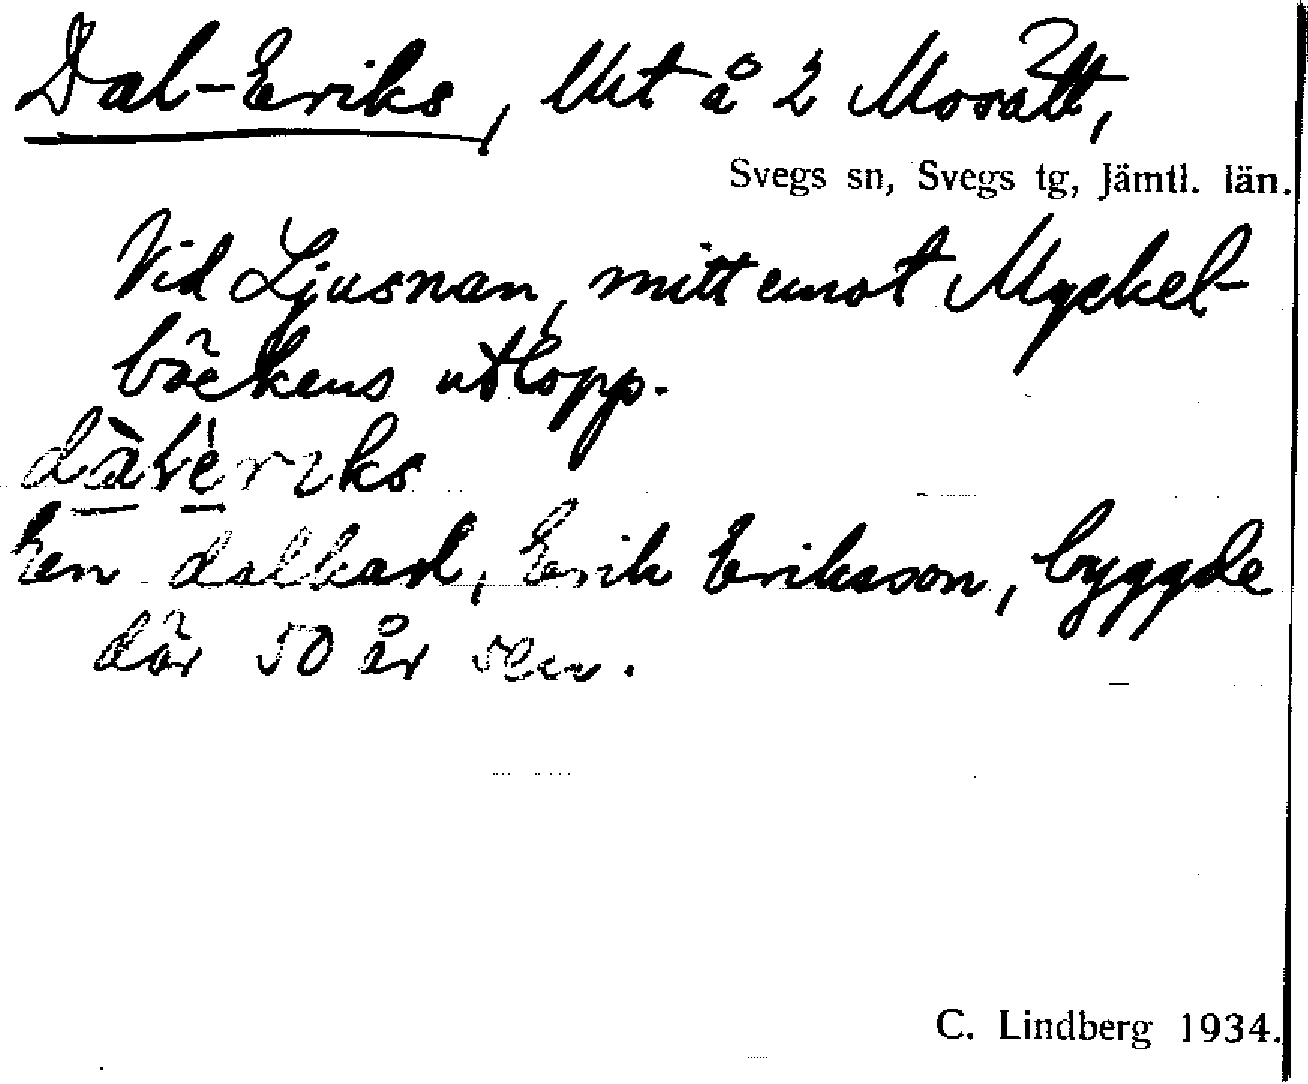 Dal-Eriks, lht å 2 Moratt,
Svegs sn, Svegs tg, Jämtl. län.
Vid Ljusnan, mitt emot Myckel-
bäckens utlopp.
dàlèriks
En dalkarl, Erik Eriksson, byggde
där 50 år sen.
C. Lindberg 1934.